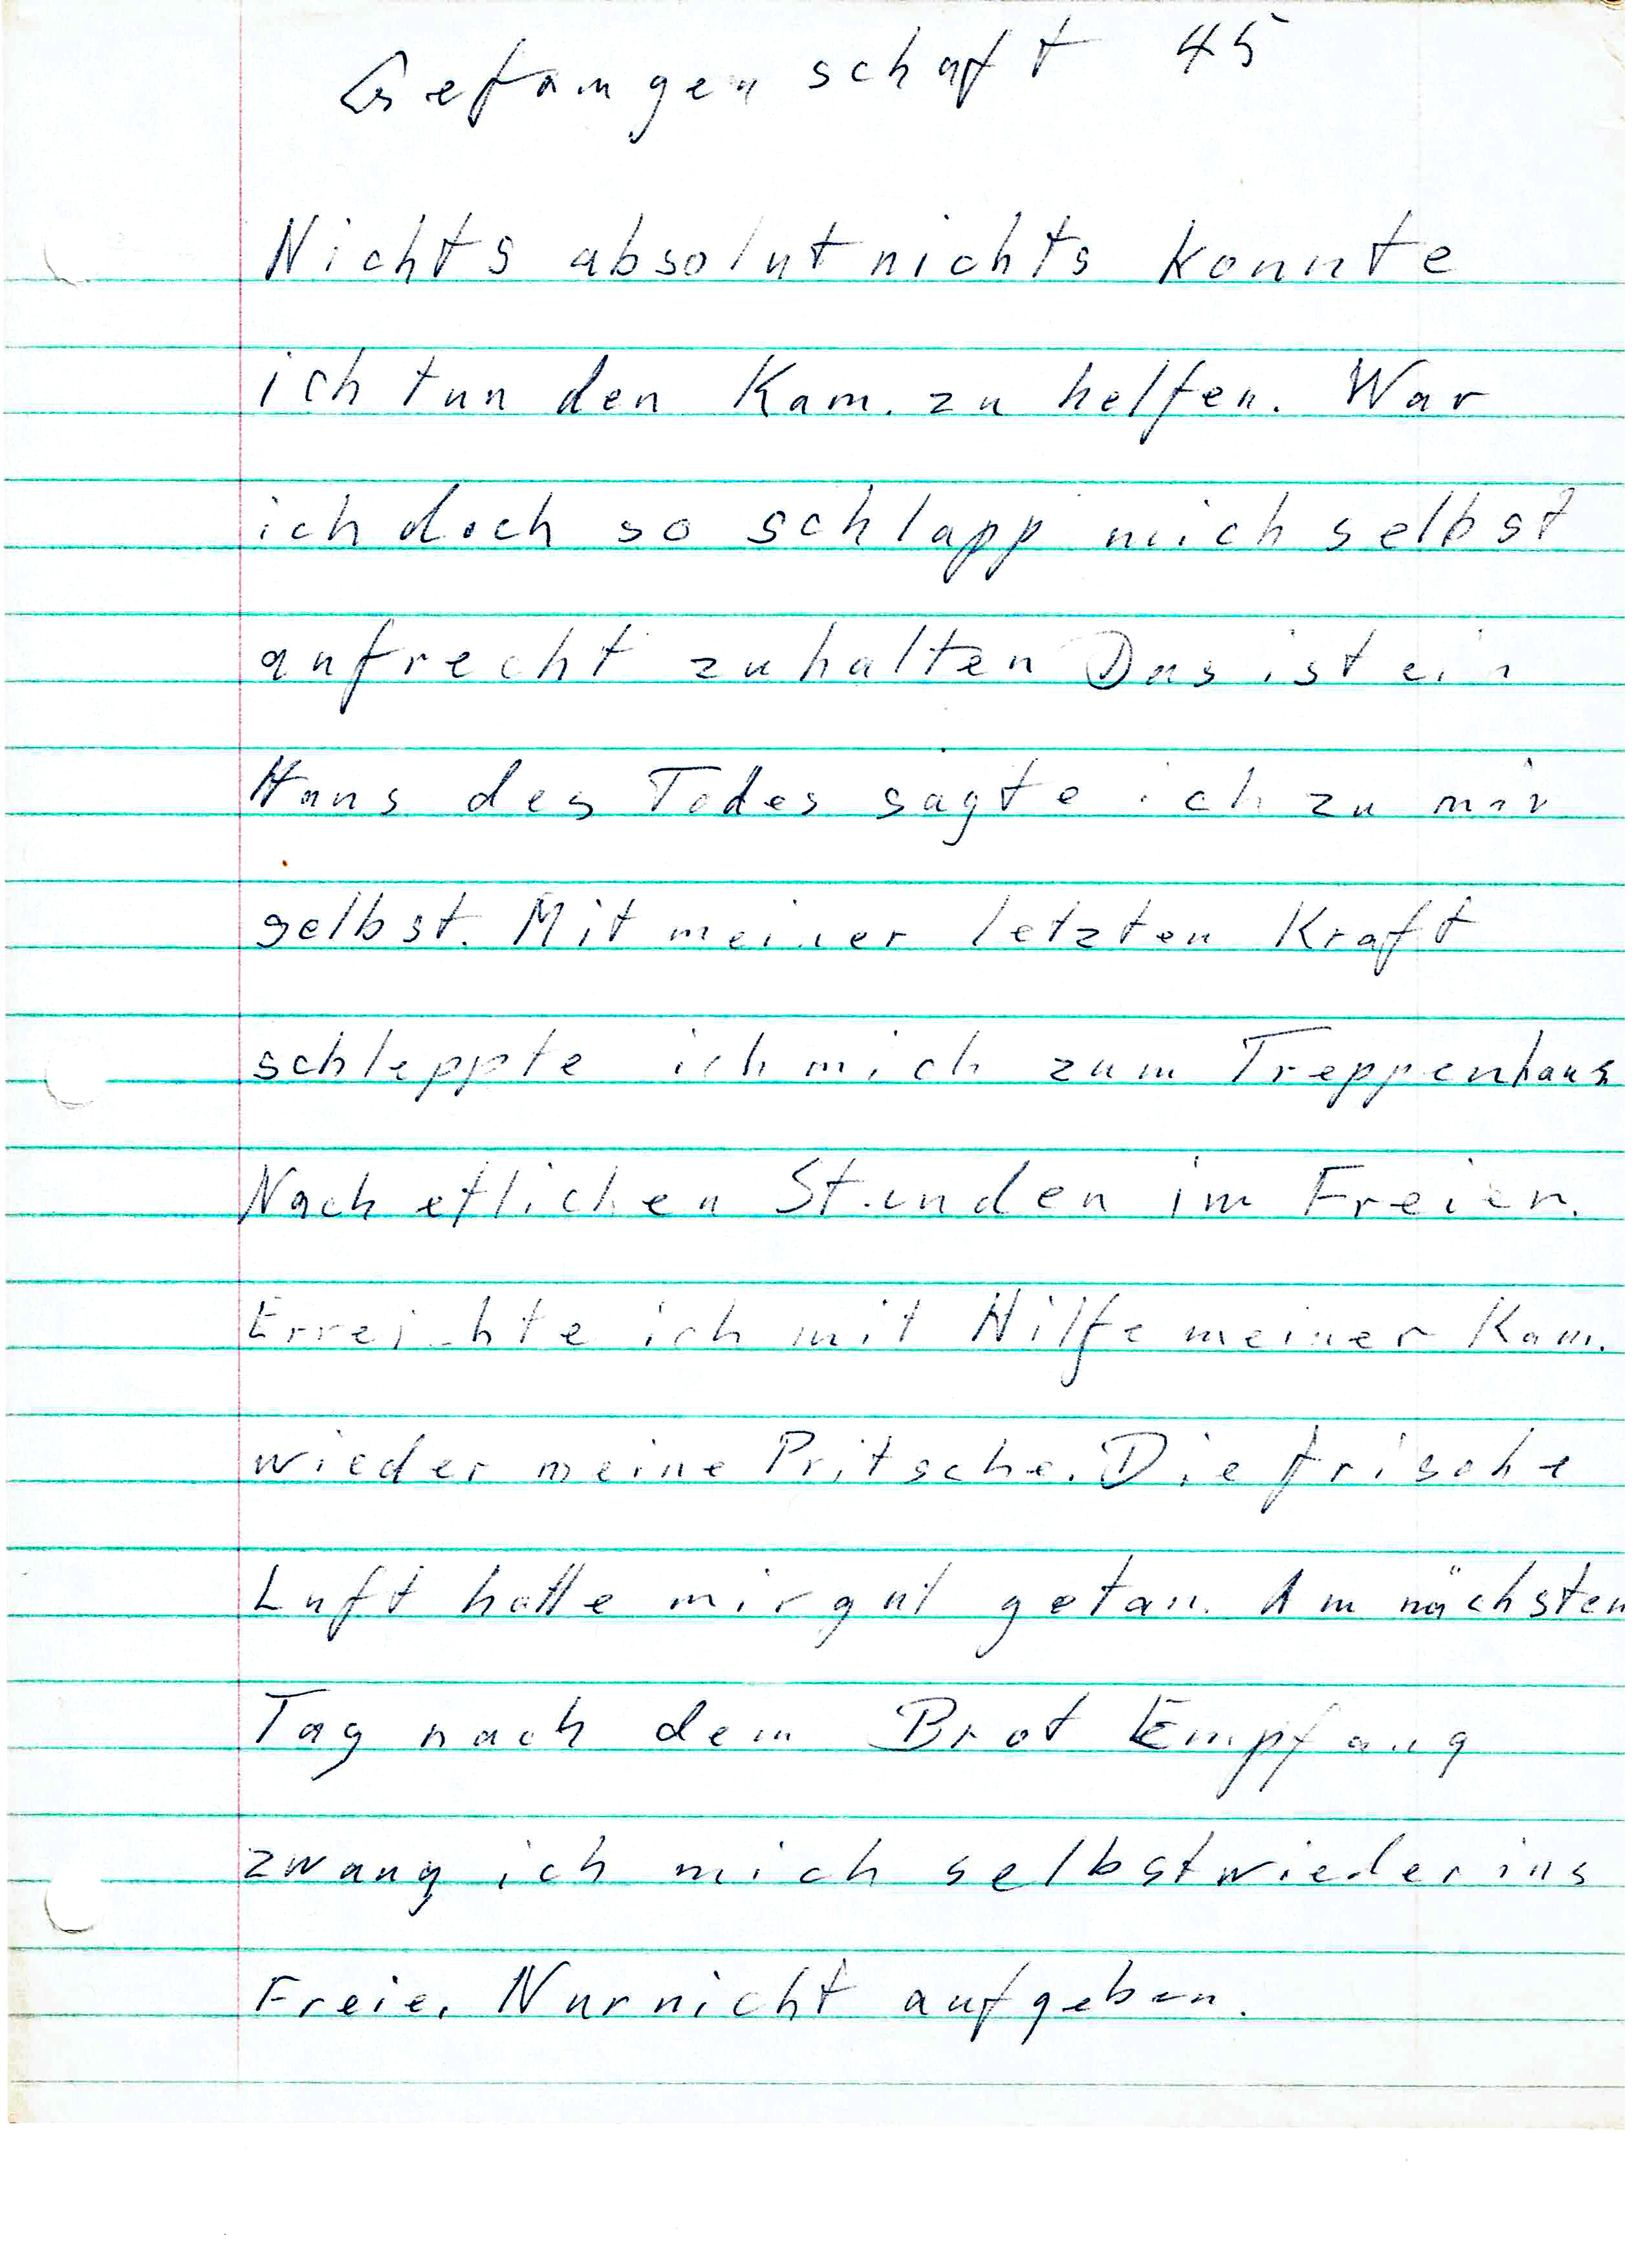 Gefangenschaft 45
Nichts absolut nichts konnte
ich tun den Kam. zu helfen. War
ich doch so schlapp mich selbst
aufrecht zuhalten Das ist ein
Haus des Todes sagte ich zu mir
selbst. Mit meiner letzten Kraft
schleppte ich mich zum Treppenhaus
Nach etlichen Stunden im Freien.
Erreichte ich mit Hilfe meiner Kam.
wieder meine Pritsche. Die frische
Luft hatte mir gut getan. Am nächsten
Tag nach dem Brot Empfang
zwang ich mich selbst wieder ins
Freie. Nur nicht aufgeben.